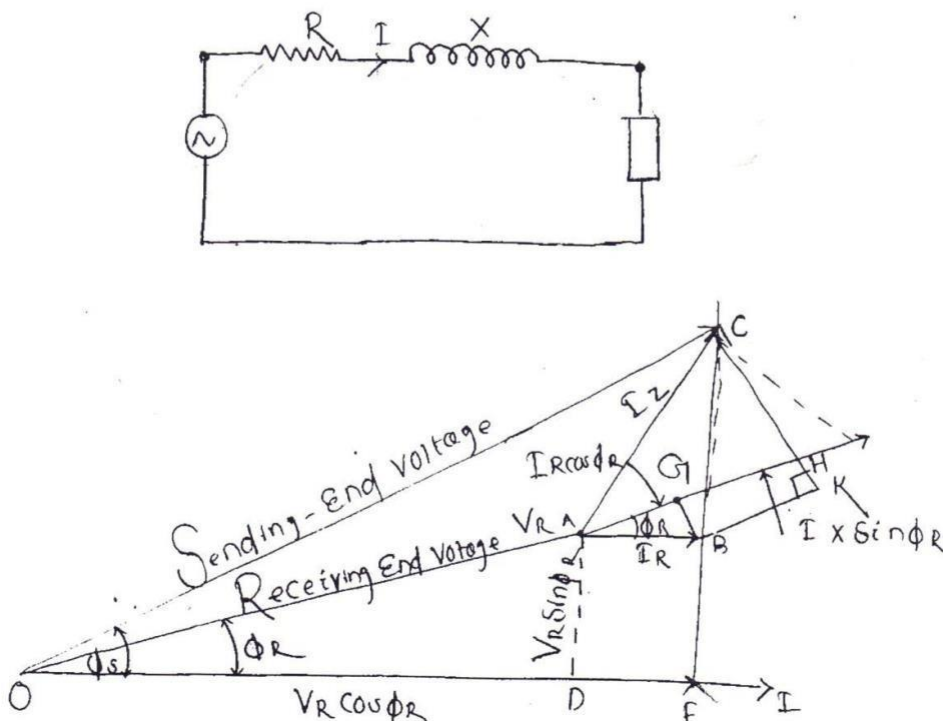 R I X
~
C
IZ
Sending-End Voltage
IRcosϕR
G
H
K
VR A
ϕR
IR
B
I X SinϕR
Receiving End Votage
VRSinϕR
ϕS
ϕR
O
VR COSϕR
D
F
I